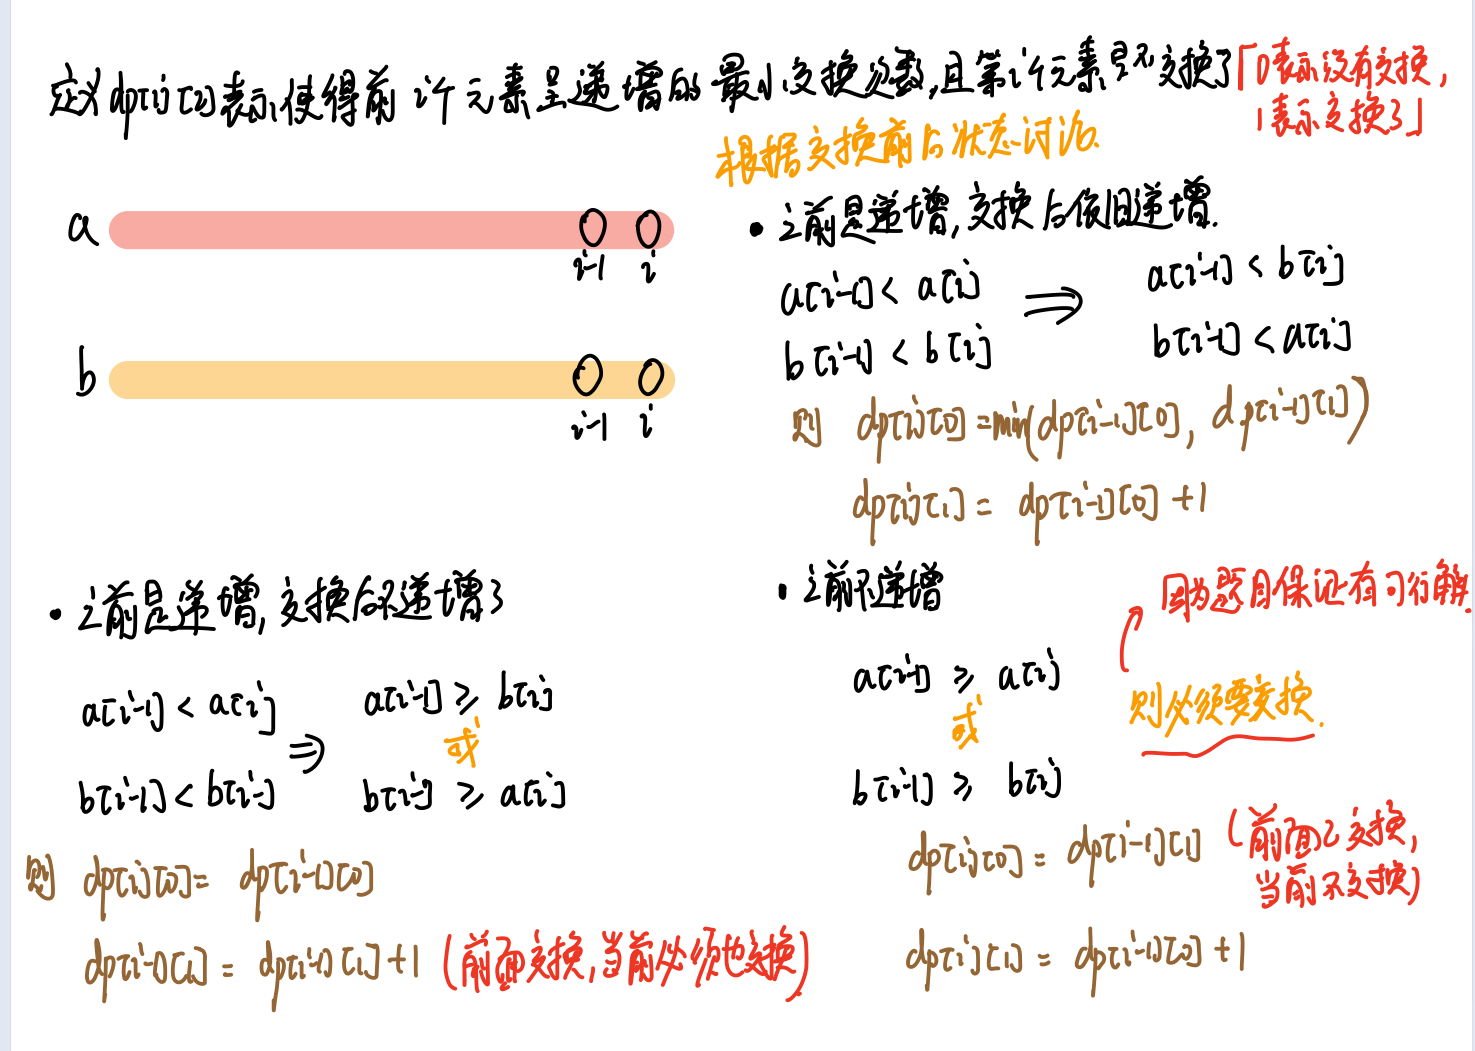 定义dp[i][2]表示使得前i个元素呈递增的最小交换次数,且第i个元素是否交换了「0表示没有交换,
1表示交换了」
根据交换前后状态讨论.
a
i-1 i
b
i-1 i
• 之前是递增,交换后依旧递增.
a[i-1] < a[i] ⇒ a[i-1] < b[i]
b[i-1] < b[i] b[i-1] < a[i]
则 dp[i][0] = min(dp[i-1][0], dp[i-1][1])
dp[i][1] = dp[i-1][0] + 1
• 之前是递增,交换后不递增了
a[i-1] < a[i] ⇒ a[i-1] ≥ b[i]
或
b[i-1] < b[i] b[i-1] ≥ a[i]
则 dp[i][0] = dp[i-1][0]
dp[i][1] = dp[i-1][1] + 1 (前面交换,当前必须也交换)
• 之前不递增
因为题目保证有可行解.
a[i-1] ≥ a[i]
或
则必须要交换.
b[i-1] ≥ b[i]
dp[i][0] = dp[i-1][1] (前面已交换,
当前不交换)
dp[i][1] = dp[i-1][0] + 1